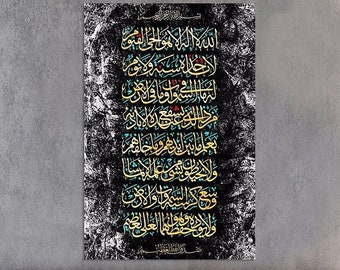 بسم الله الرحمن الرحيم
الله لا اله الا هو الحي القيوم
لا تأخذه سنة ولا نوم
له ما في السموات وما في الأرض
من ذا الذي يشفع عنده إلا بإذنه
يعلم ما بين أيديهم وما خلفهم
ولا يحيطون بشيء من علمه إلا بما شاء
وسع كرسيه السموات والأرض
ولا يؤده حفظهما وهو العلي العظيم
صدق الله العظيم